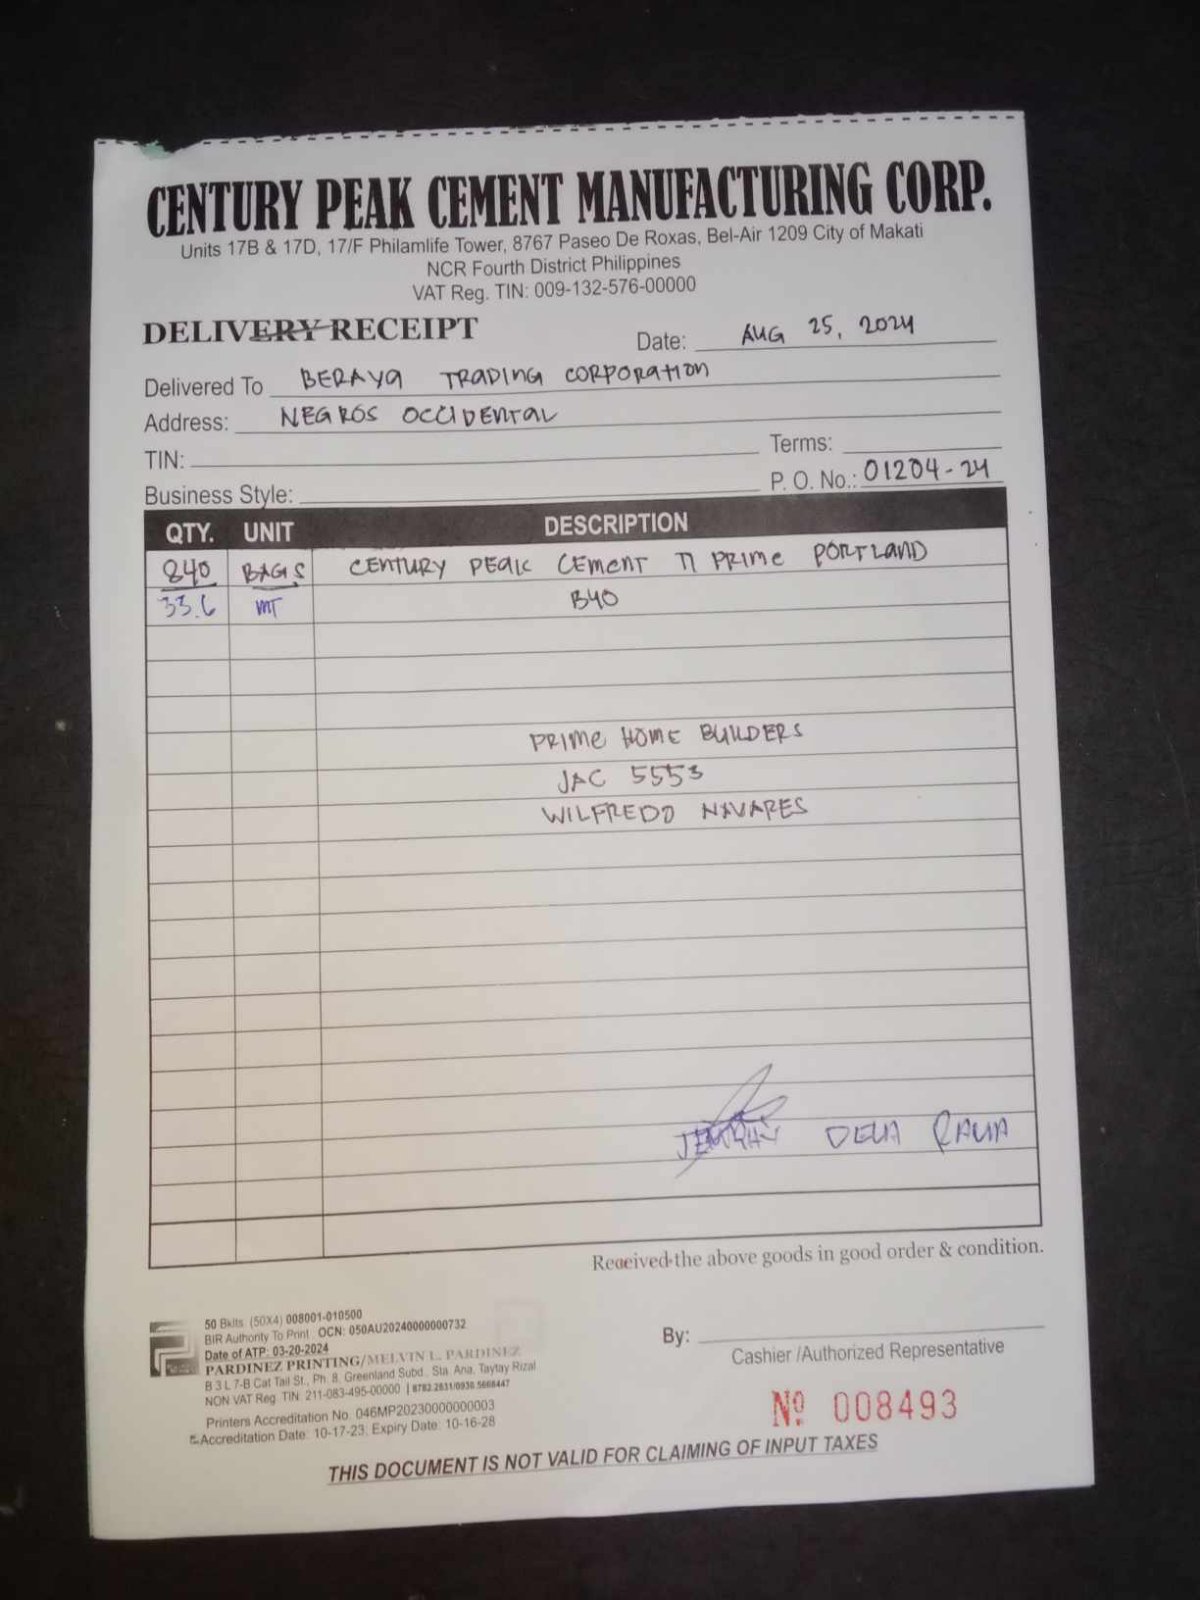 CENTURY PEAK CEMENT MANUFACTURING CORP.
Units 17B & 17D, 17/F Philamlife Tower, 8767 Paseo De Roxas, Bel-Air 1209 City of Makati
NCR Fourth District Philippines
VAT Reg. TIN: 009-132-576-00000
DELIVERY RECEIPT
Date: AUG 25, 2024
Delivered To BERAYA TRADING CORPORATION
Address: NEGROS OCCIDENTAL
TIN:
Terms:
Business Style:
P. O. No.: 01204-24
QTY. UNIT DESCRIPTION
840 BAGS CENTURY PEAK CEMENT T1 PRIME PORTLAND
33.6 MT B40
PRIME HOME BUILDERS
JAC 5553
WILFREDO NAVARES
DELA RAMA
Received the above goods in good order & condition.
50 Bklts (50X4) 008001-010500
BIR Authority To Print OCN: 050AU20240000000732
Date of ATP: 03-20-2024
PARDINEZ PRINTING/MELVIN L. PARDINEZ
B 3 L 7-B Cat Tail St., Ph. 8, Greenland Subd., Sta. Ana, Taytay Rizal
NON VAT Reg. TIN: 211-083-495-00000 | 8782.2831/0930.5668447
Printers Accreditation No. 046MP20230000000003
Accreditation Date: 10-17-23; Expiry Date: 10-16-28
By:
Cashier /Authorized Representative
Nº 008493
THIS DOCUMENT IS NOT VALID FOR CLAIMING OF INPUT TAXES